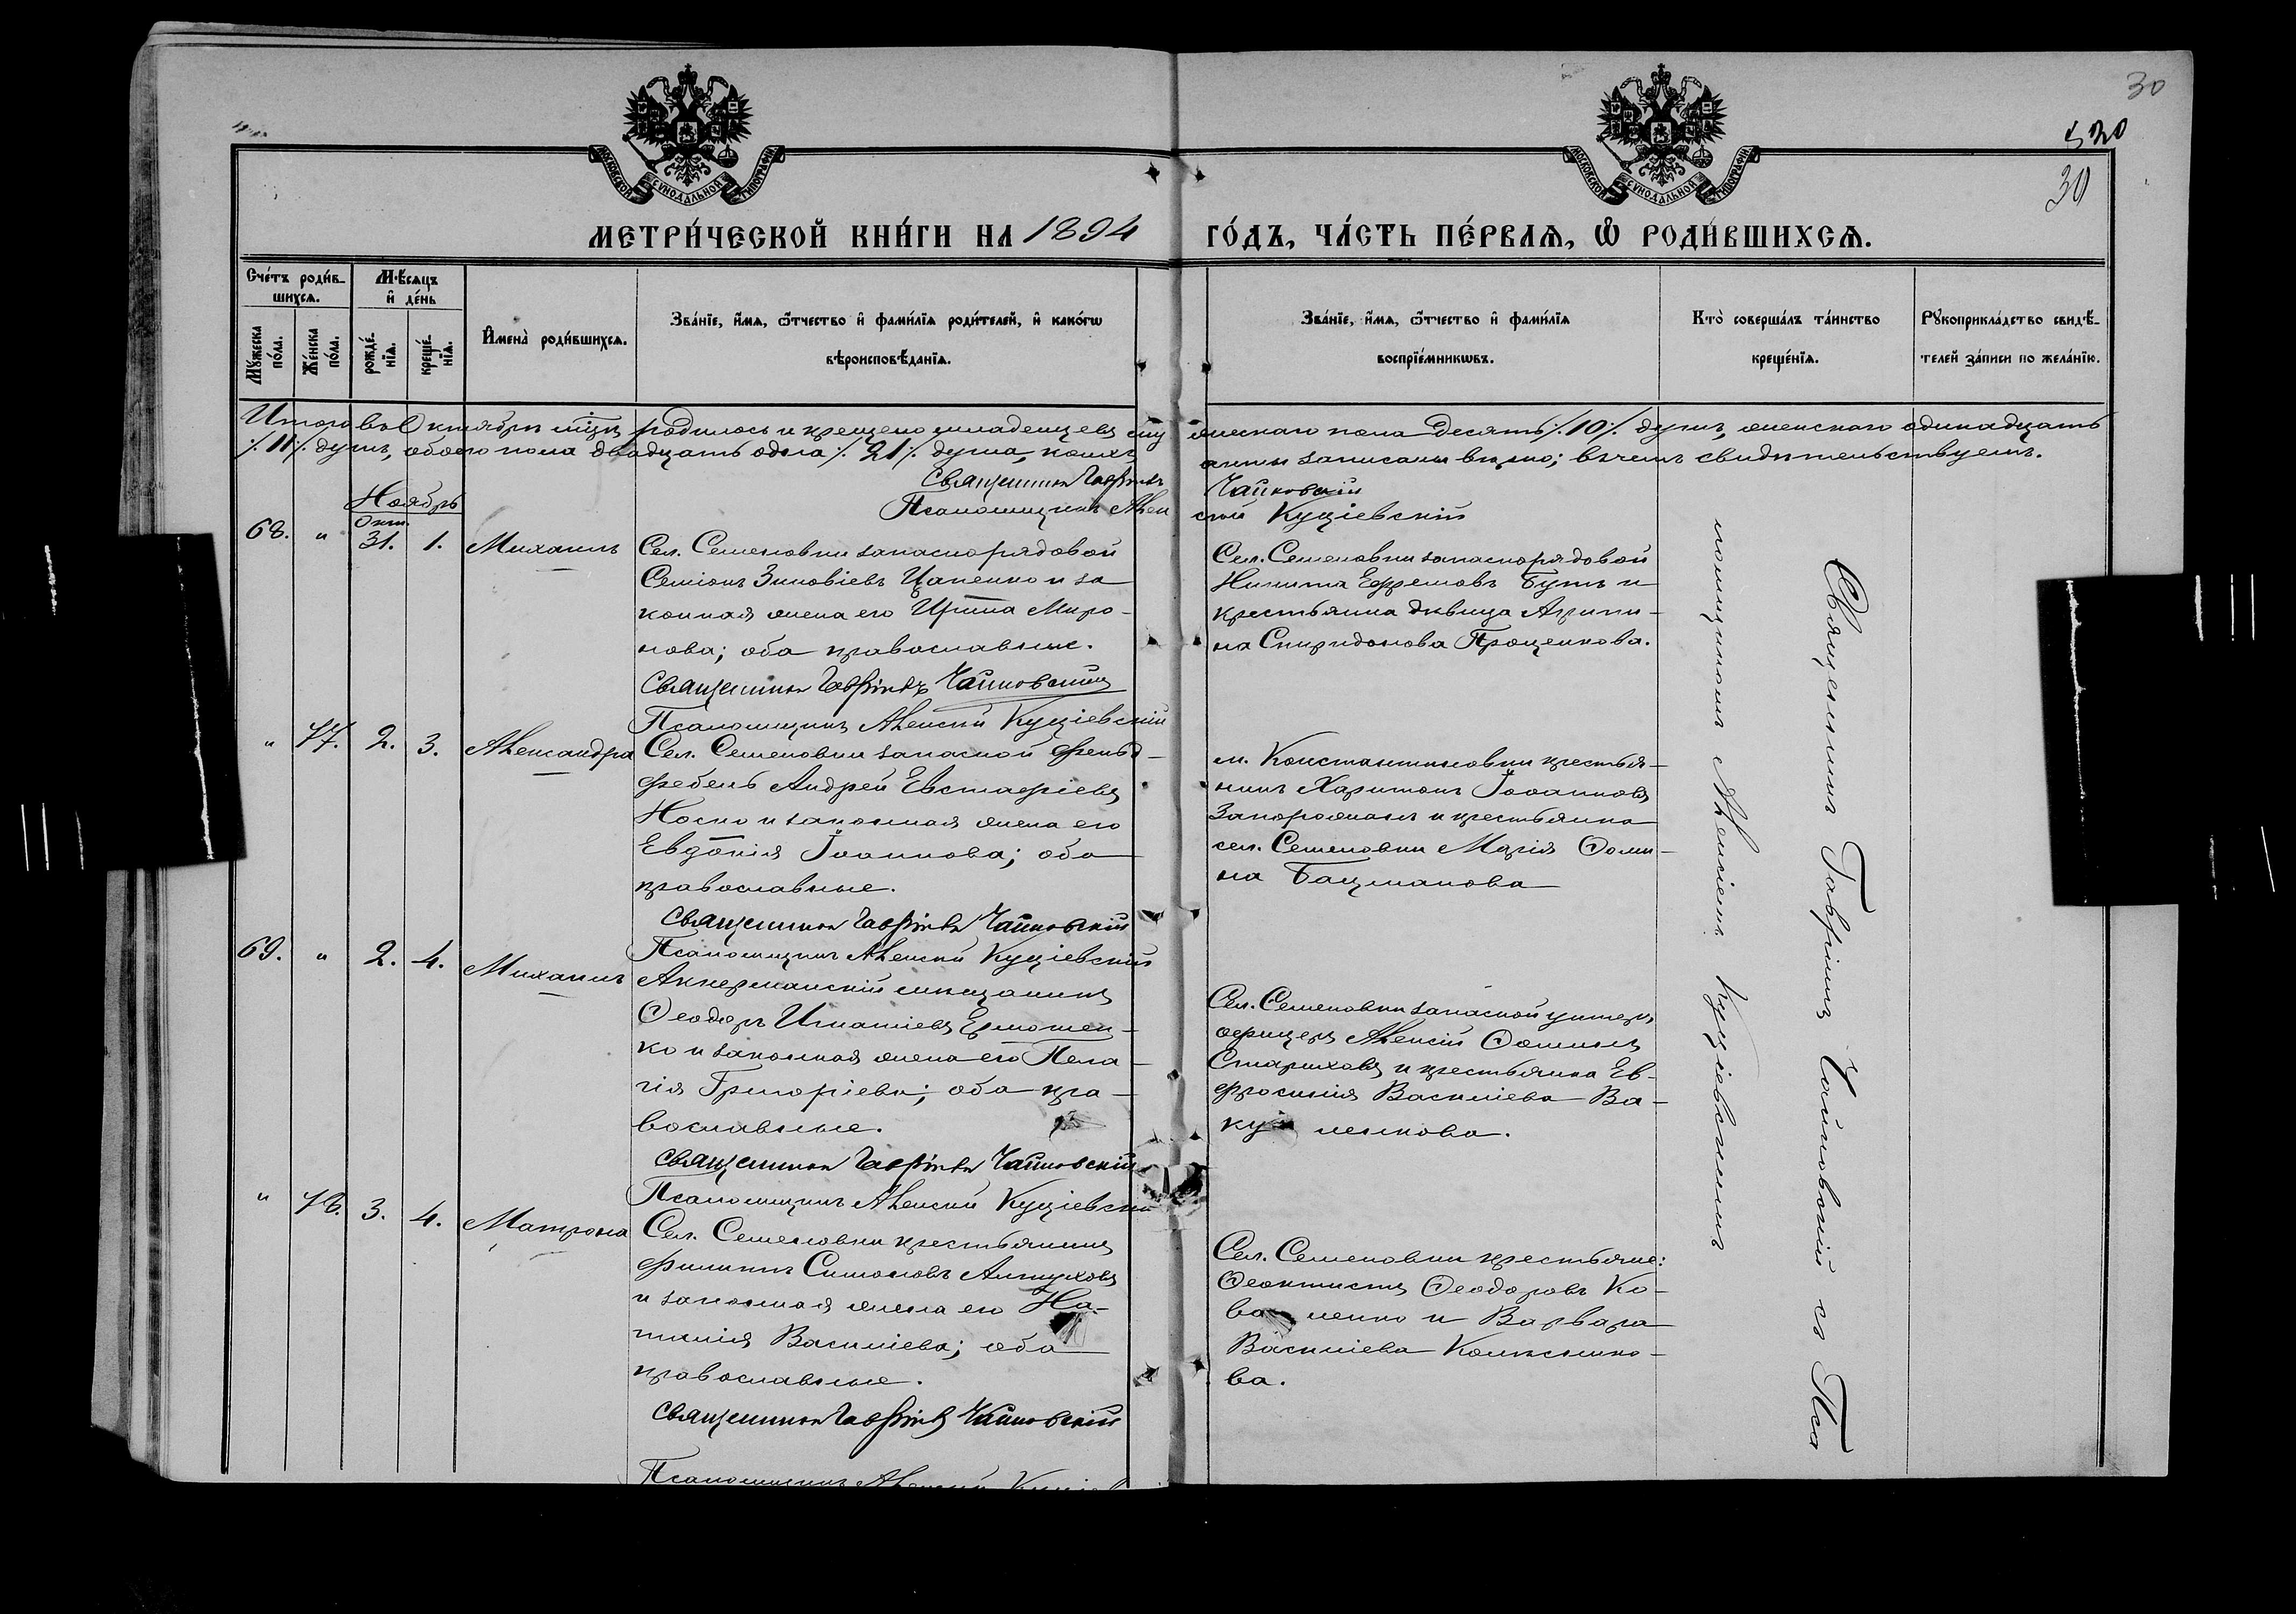 30
520
30
МОСКОВСКОЙ СУНОДАЛЬНОЙ ТИПОГРАФІИ
МОСКОВСКОЙ СУНОДАЛЬНОЙ ТИПОГРАФІИ
МЕТРИ́ЧЕСКОЙ КНИ́ГИ НА 1894 ГО́ДЪ, ЧА́СТЬ ПЕ́РВАѦ, Ѽ РОДИ́ВШИХСѦ.
Сче́тъ роди́в-
шихсѧ.
Мꙋ́жеска
по́ла.
Же́нска
по́ла.
М҄ѣсѧцъ
и҆ де́нь
рожде́-
нїѧ.
креще́-
нїѧ.
И҆мена̀ роди́вшихсѧ.
Зва́нїе, и҆́мѧ, ѻ҆́тчество и҆ фами́лїѧ роди́телей, и҆ како́гѡ
вѣроисповѣ́данїѧ.
Зва́нїе, и҆́мѧ, ѻ҆́тчество и҆ фами́лїѧ
воспрїе́мникѡвъ.
Кто̀ соверша́лъ та́инство
креще́нїѧ.
Рꙋкоприкла́дство свидѣ́-
телей за́писи по жела́нїю.
Итого въ Октябрѣ мцѣ родилось и крещено младенцевъ мужескаго пола десять /10/ душъ, женскаго одинадцать
/11/ душъ, обоего пола двадцать одна /21/ душа, коихъ акты записаны вѣрно; въ чемъ свидѣтельствуемъ.
Священникъ Гавріилъ Чайковскій
Псаломщикъ Алексій Куціевскій
Ноябрь
68. " Окт. 31. 1. Михаилъ
Сел. Семеновки запаснорядовой
Семіонъ Зиновіевъ Цапенко и за
конная жена его Ирина Миро-
нова; оба православные.
Священникъ Гавріилъ Чайковскій
Псаломщикъ Алексій Куціевскій
Сел. Семеновки запаснорядовой
Никита Ефремовъ Бутъ и
крестьянка дѣвица Агрипи-
на Спиридонова Проценкова.
" 77. 2. 3. Александра
Сел. Семеновки запасной фельд-
фебель Андрей Евстафіевъ
Носко и законная жена его
Евдокія Іоаннова; оба
православные.
Священникъ Гавріилъ Чайковскій
Псаломщикъ Алексій Куціевскій
м. Константиновки крестья-
нинъ Харитонъ Іоанновъ
Запорожанъ и крестьянка
сел. Семеновки Марія Ѳоми-
на Бацманова
69. " 2. 4. Михаилъ
Аккерманскій мѣщанинъ
Ѳеодоръ Игнатіевъ Ермошен-
ко и законная жена его Пела-
гія Григоріева; оба пра-
вославные.
Священникъ Гавріилъ Чайковскій
Псаломщикъ Алексій Куціевскій
Сел. Семеновки запасной унтеръ
офицеръ Алексій Ѳоминъ
Стариховъ и крестьянка Ев-
фросинія Василіева Ва-
ку ленкова.
" 78. 3. 4. Матрона
Сел. Семеновки крестьянинъ
Филиппъ Симоновъ Алтуховъ
и законная жена его На-
талія Василіева; оба
православные.
Священникъ Гавріилъ Чайковскій
Псаломщикъ Алексій
Сел. Семеновки крестьяне:
Ѳеоктистъ Ѳеодоровъ Ко-
ва ленко и Варвара
Василіева Колѣснико-
ва.
Священникъ Гавріилъ Чайковскій съ Пса
ломщикомъ Алексіемъ Куціевскимъ